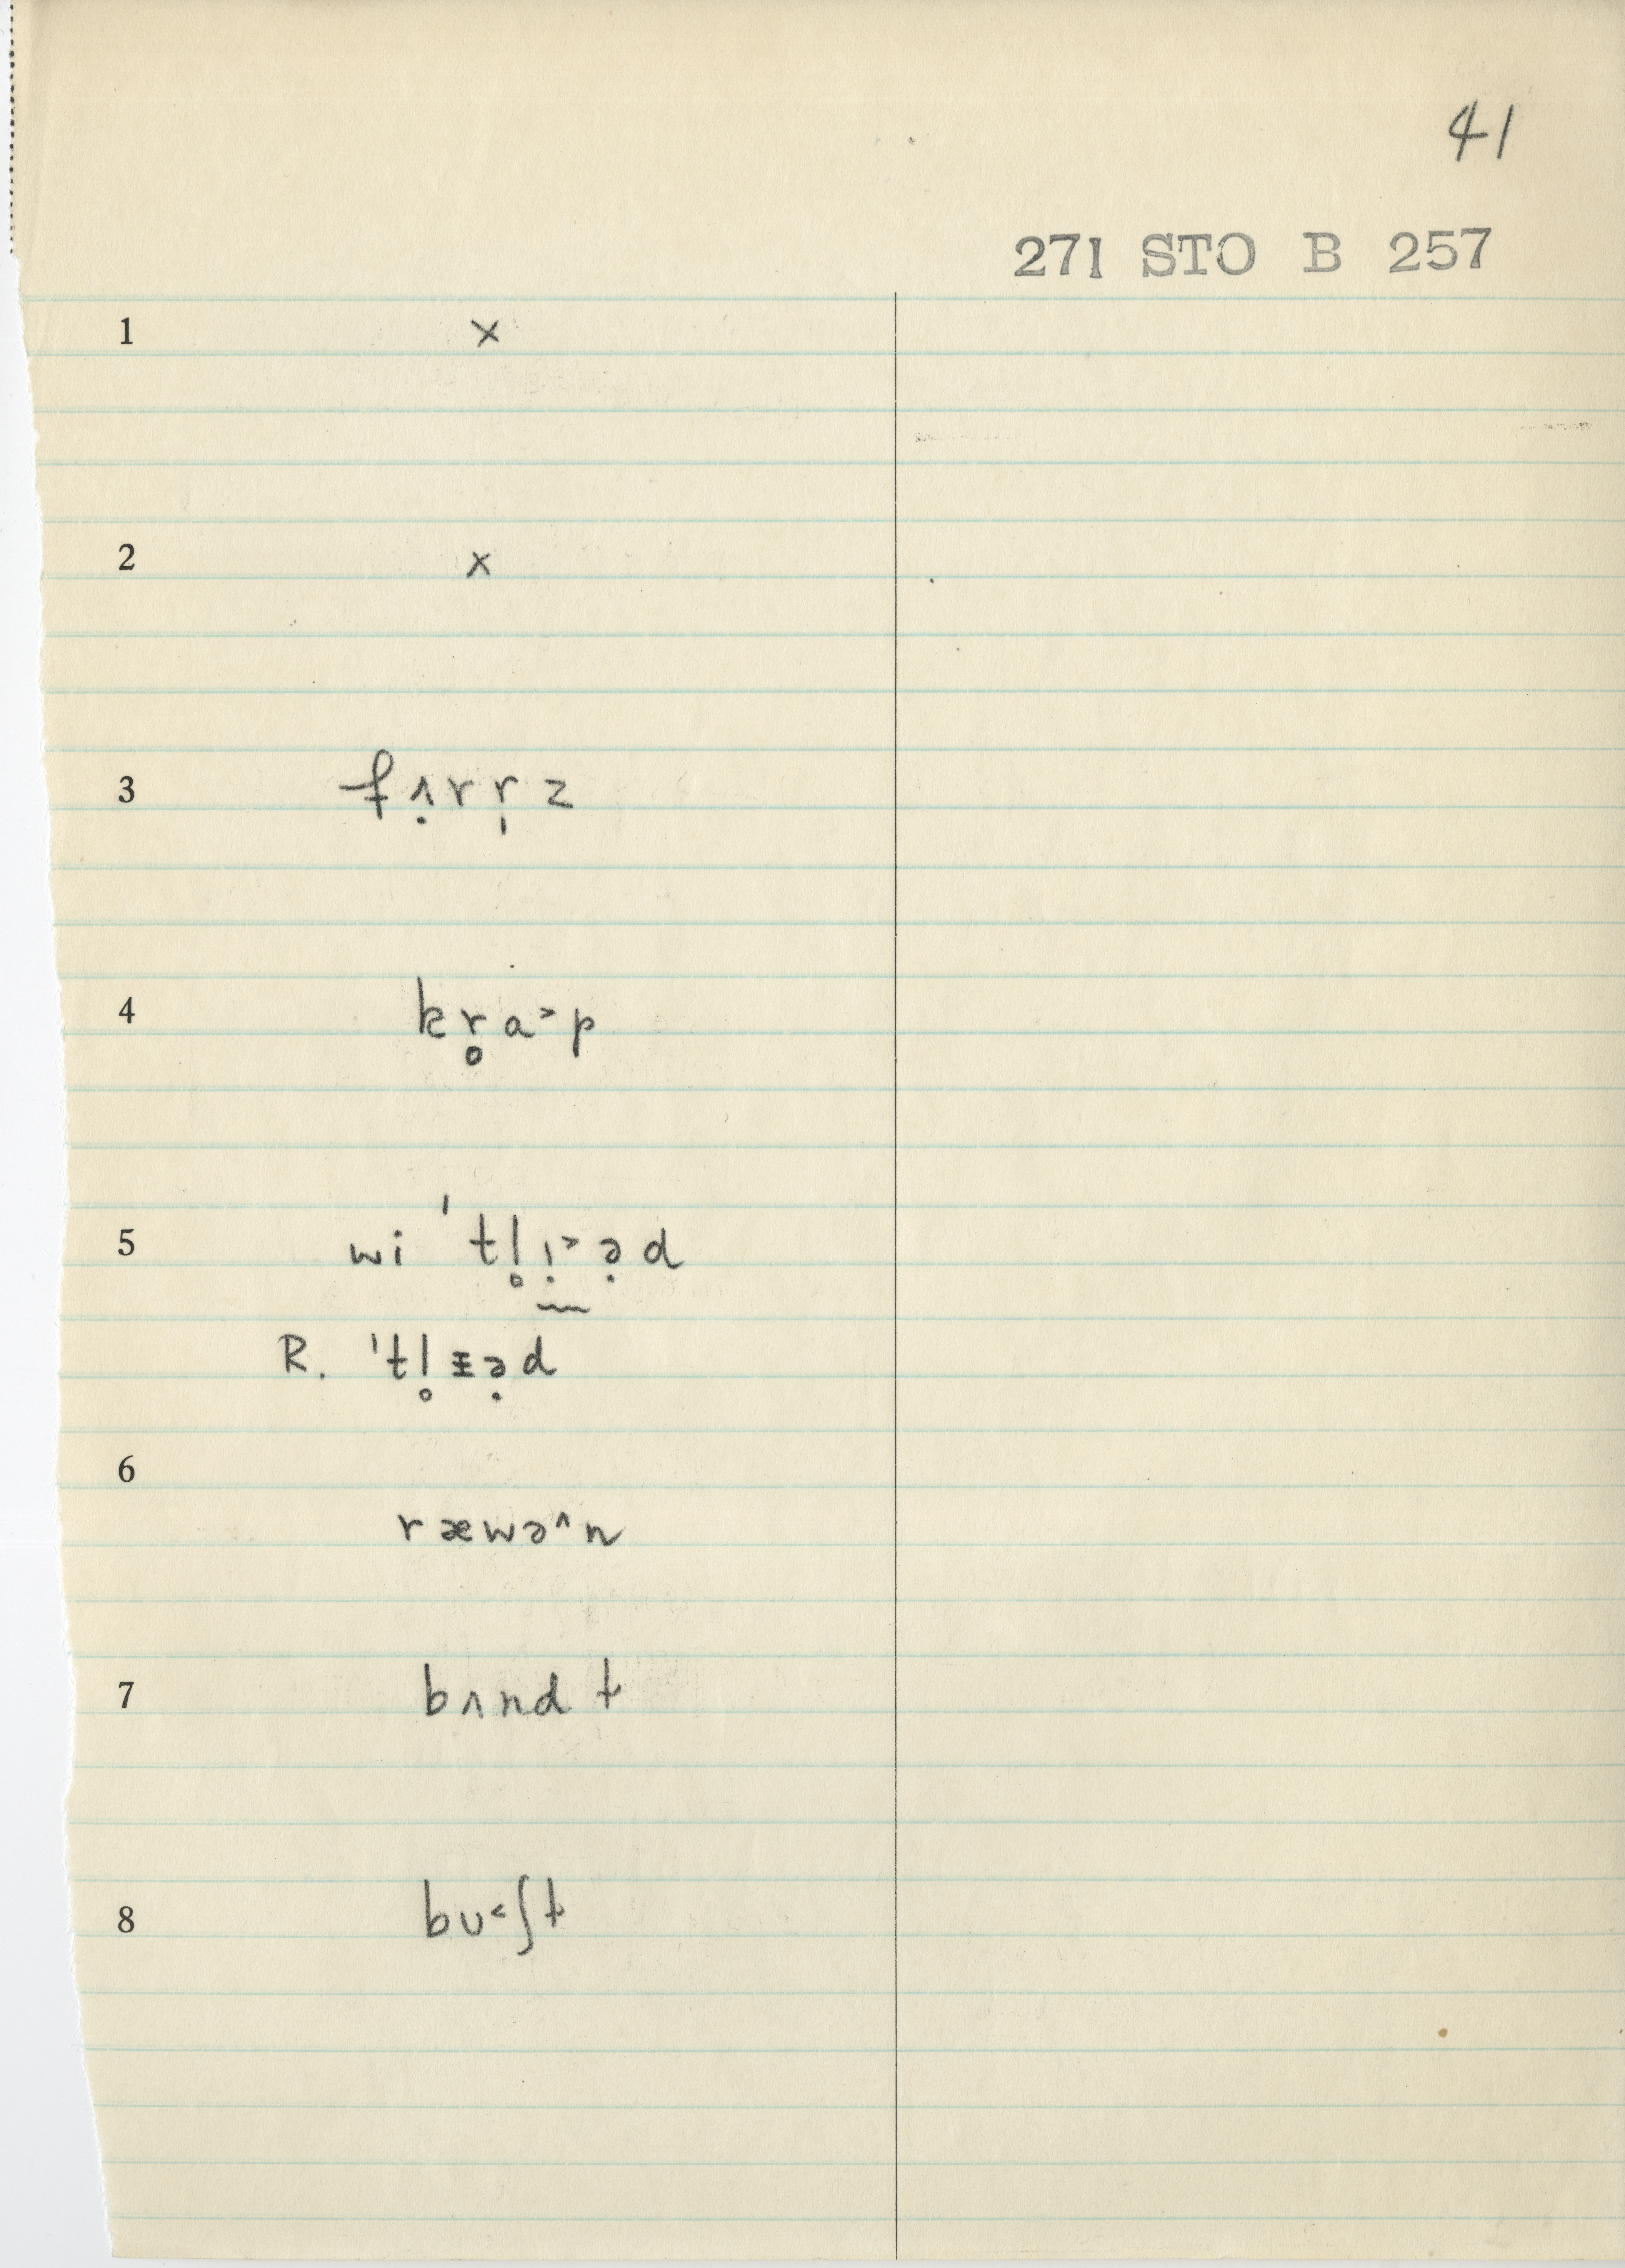 41
271 STO B 257
1 x
2 x
3 fʌ̣rr̩z
4 kr̥a˃p
5 wi ˈtl̥ɪ̣˃ə̣d
R. ˈtl̥ᵻə̣d
6
ræwə^n
7 bʌnd t
8 bʊ˂ʃt